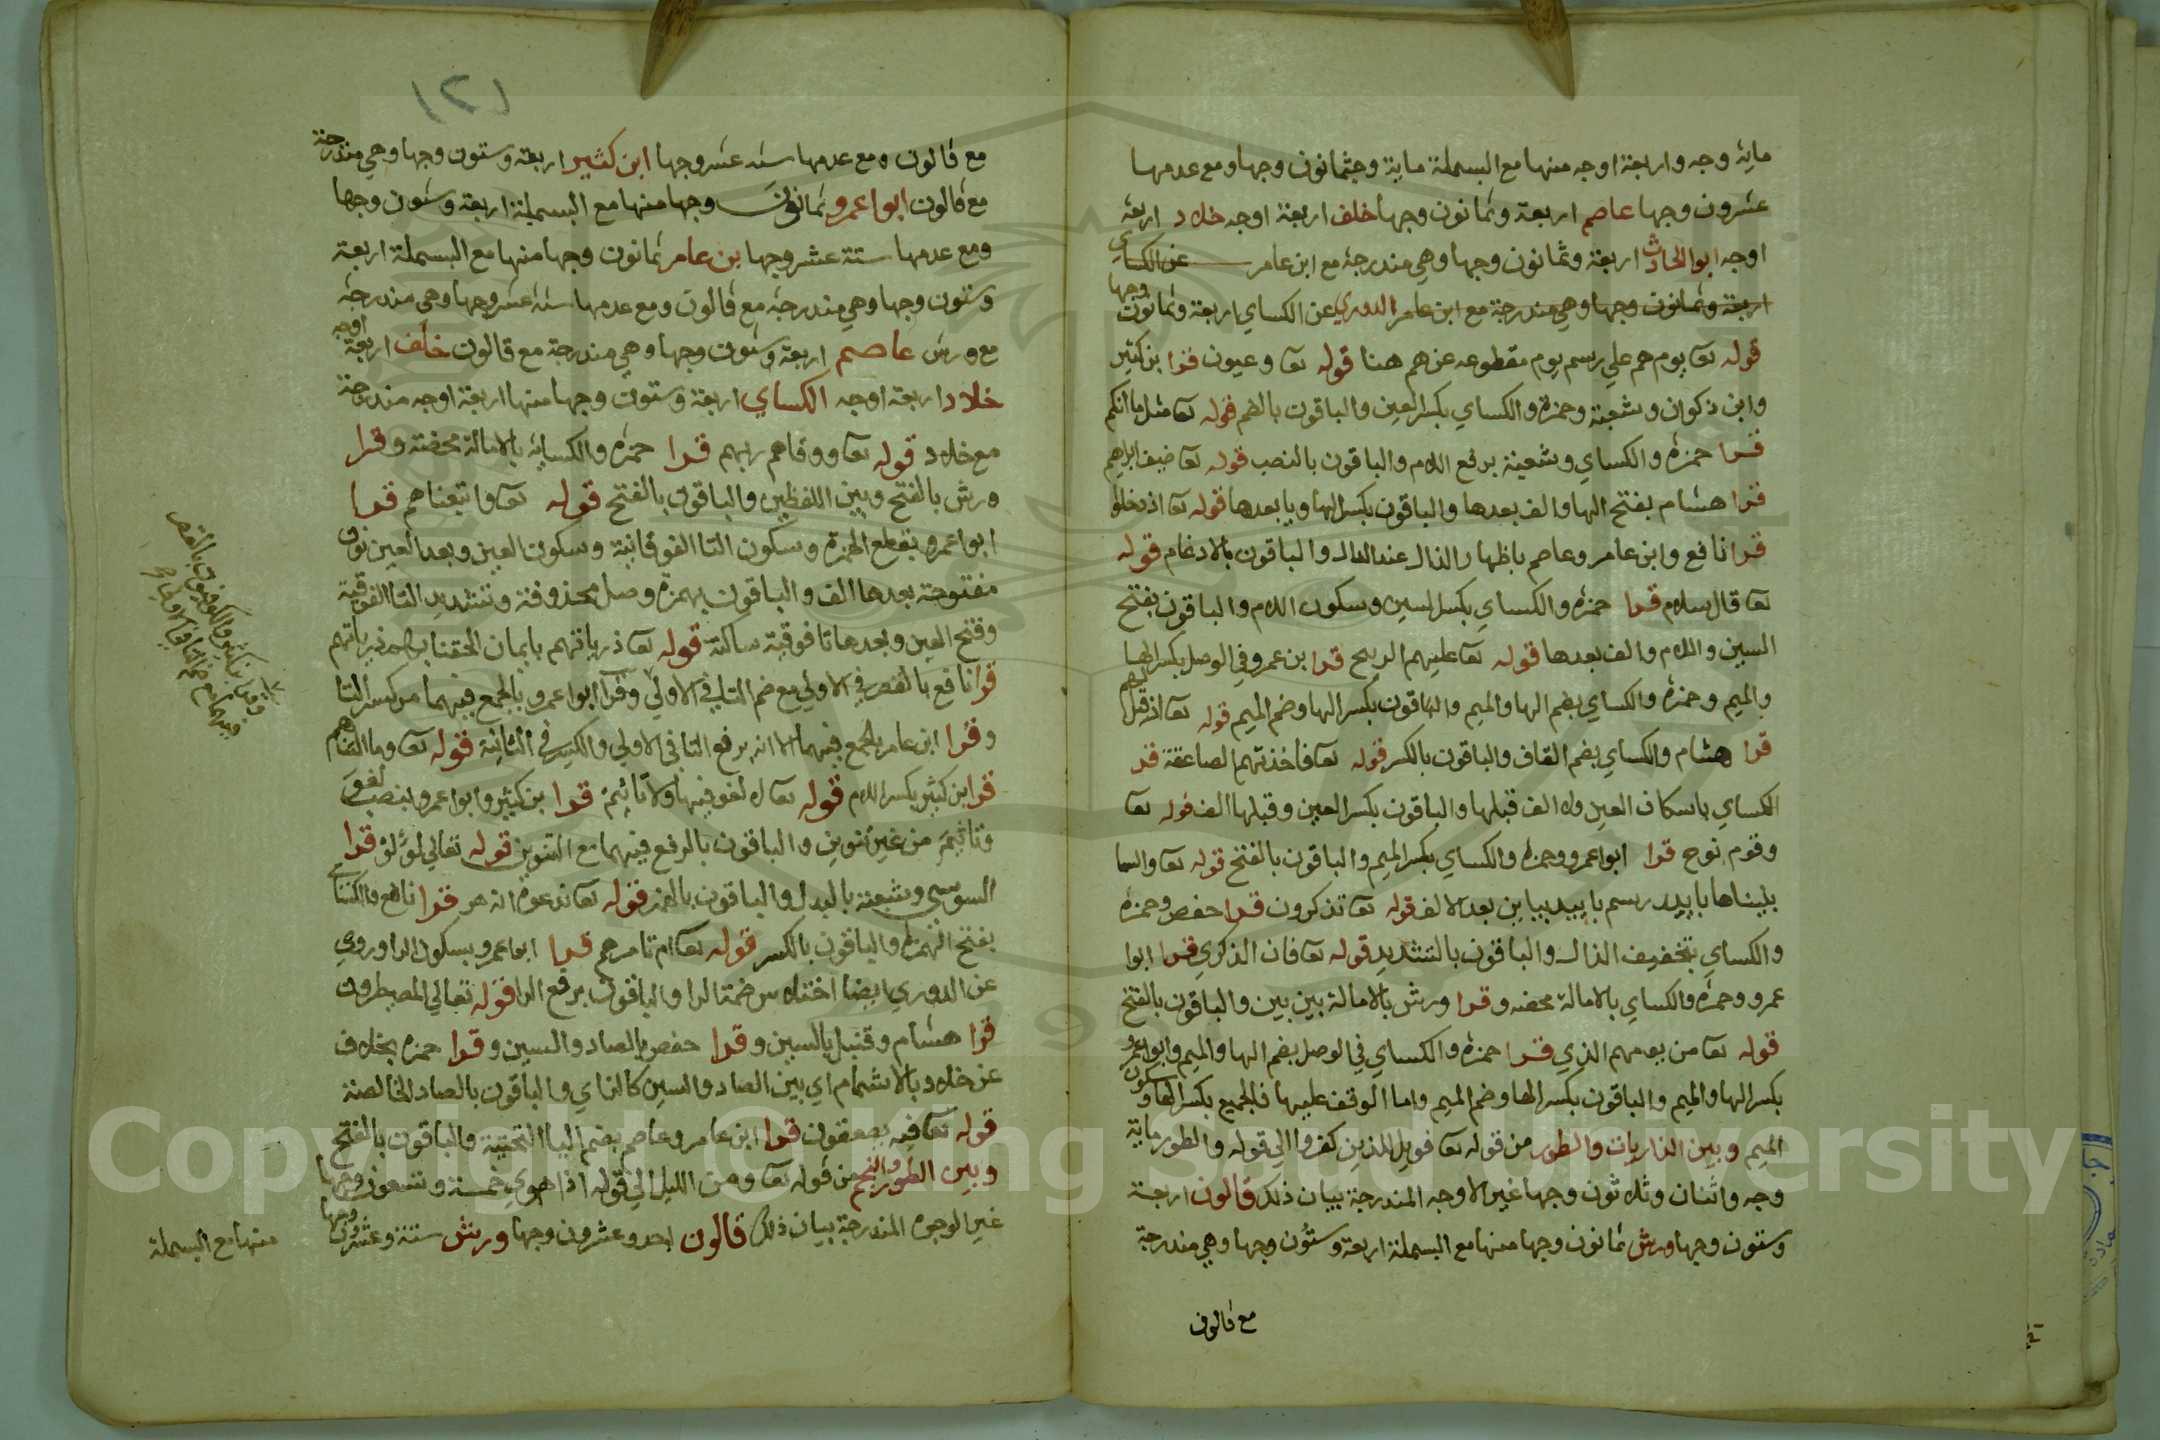 مايه وجه واربعة اوجه منها مع البسملة ماية وجثمانون وجها ومع عدمها
عشرون وجها عاصم اربعة وثمانون وجها خلف اربعة اوجه خلاد اربعة
اوجه ابو الحادث اربعة وثمانون وجها وهي مندرجة مع ابن عامر عن الكساي
اربعة وثمانون وجها وهي مندرجة مع ابن عامر الدوري عن الكساي اربعة وثمانون وجها
قوله تعا يوم هم علي رسم يوم مقطوعه عن هم هنا قوله تعا وعيون قرا بن كثير
وابن ذكوان وشعبة وحمزة والكساي بكسر العين والباقون بالضم قوله تعا مثل ما انكم
قرا حمزه والكساي وشعبة برفع اللام والباقون بالنصب قوله تعا ضيف ابراهيم
قرا هشام بفتح الها والف بعدها والباقون بكسر الها ويا بعدها قوله تعا اذ دخلوا
قرا نافع وابن عامر وعاصم باظهار الذال عند الدال والباقون بالادغام قوله
تعا قال سلام قرا حمزه والكساي بكسر السين وسكون اللام والباقون بفتح
السين واللام والف بعدها قوله تعا عليهم الريح قرا بن عمرو في الوصل بكسر الها
والميم وحمزه والكساي بضم الها والميم والباقون بكسر الها وضم الميم قوله تعا اذ قيل لهم
قرا هشام والكساي بضم القاف والباقون بالكسر قوله تعا فاخذتهم الصاعقة قر
الكساي باسكان العين ولا الف قبلها والباقون بكسر العين وقبلها الف قوله تعا
وقوم نوح قرا ابوا عمرو وحمزه والكساي بكسر الميم والباقون بالفتح قوله تعا والسما
بنيناها باييد رسم باييد بيابن بعد الالف قوله تعا تذكرون قرا حفص وحمزه
والكساي بتخفيف الذال والباقون بالتشديد قوله تعا فان الذكري قرا ابوا
عمرو وحمزه والكساي بالامالة محضه وقرا ورش بالامالة بين بين والباقون بالفتح
قوله تعا من يومهم الذي قرا حمزه والكساي في الوصل بضم الها والميم وابوا عمرو
بكسر الها والميم والباقون بكسر الها وضم الميم واما الوقف عليها فالجميع بكسر الها وسكون
الميم وبين الذاريات والطور من قوله تعا فويل للذين كفروا الي قوله والطور ماية
وجه واثنان وثلاثون وجها غير الاوجه المندرجة بيان ذلك قالون اربعة
وستون وجها ورش ثمانون وجها منها مع البسملة اربعة وستون وجها وهي مندرجة
مع قالون
١٢١
مع قالون ومع عدمها سته عشر وجها ابن كثير اربعة وستون وجها وهي مندرجة
مع قالون ابوا عمرو ثمانون وجها منها مع البسملة اربعة وستون وجها
ومع عدمها ستة عشر وجها بن عامر ثمانون وجها منها مع البسملة اربعة
وستون وجها وهي مندرجة مع قالون ومع عدمها سته عشر وجها وهي مندرجة
مع ورش عاصم اربعة وستون وجها وهي مندرجة مع قالون خلف اربعة اوجه
خلاد اربعة اوجه الكساي اربعة وستون وجها منها اربعة اوجه مندرجة
مع خلاد قوله تعا ووقاهم ربهم قرا حمزه والكسايه بالامالة محضة وقرا
ورش بالفتح وبين اللفظين والباقون بالفتح قوله تعا واتبعناهم قرا
ابوا عمرو بقطع الهمزة وسكون التا الفوقانية وسكون العين وبعد العين نون
مفتوحة بعدها الف والباقون بهمزة وصل محذوفة وتشديد التا الفوقية
وفتح العين وبعدها تا فوقية ساكنة قوله تعا ذرياتهم بايمان الحقنا بهم ذرياتهم
قرا نافع بالقصر في الاولي مع ضم التا في الاولي وقرا ابوا عمرو بالجمع فيهما مع كسر التا
وقرا ابن عامر بالجمع فيهما الا انه يرفع التا في الاولي والكسر في الثانية قوله تعا وما التناهم
قرا ابن كثير بكسر اللام قوله تعا لا لغو فيها ولا تاثيم قرا بن كثير وابوا عمرو بنصب لغو
وتاثيم من غير تنوين والباقون بالرفع فيهما مع التنوين قوله تعالي لؤلؤ قرا
السوسي وشعبة بالبدل والباقون بالهمز قوله تعا ندعوه انه هر قرا نافع والكساي
بفتح الهمزه والباقون بالكسر قوله تعا ام تامرهم قرا ابوا عمرو بسكون الرا وروي
عن الدوري ايضا اختلاس ضمة الرا والباقون برفع الرا قوله تعالي المصيطرون
قرا هشام وقنبل بالسين وقرا حفص بالصاد والسين وقرا حمزه بخلاف
عن خلاد بالاشمام اي بين الصاد والسين كالزاي والباقون بالصاد الخالصة
قوله تعا فيه يصعقون قرا ابن عامر وعاصم بضم اليا التحتية والباقون بالفتح
وبين الطور والنجم من قوله تعا ومن الليل الي قوله اذا هوي خمسة وتسعون وجها
غير الوجوه المندرجة بيان ذلك قالون احد وعشرون وجها ورش ستة وعشرون وجها
منها مع البسملة
Copyright © King Saud University